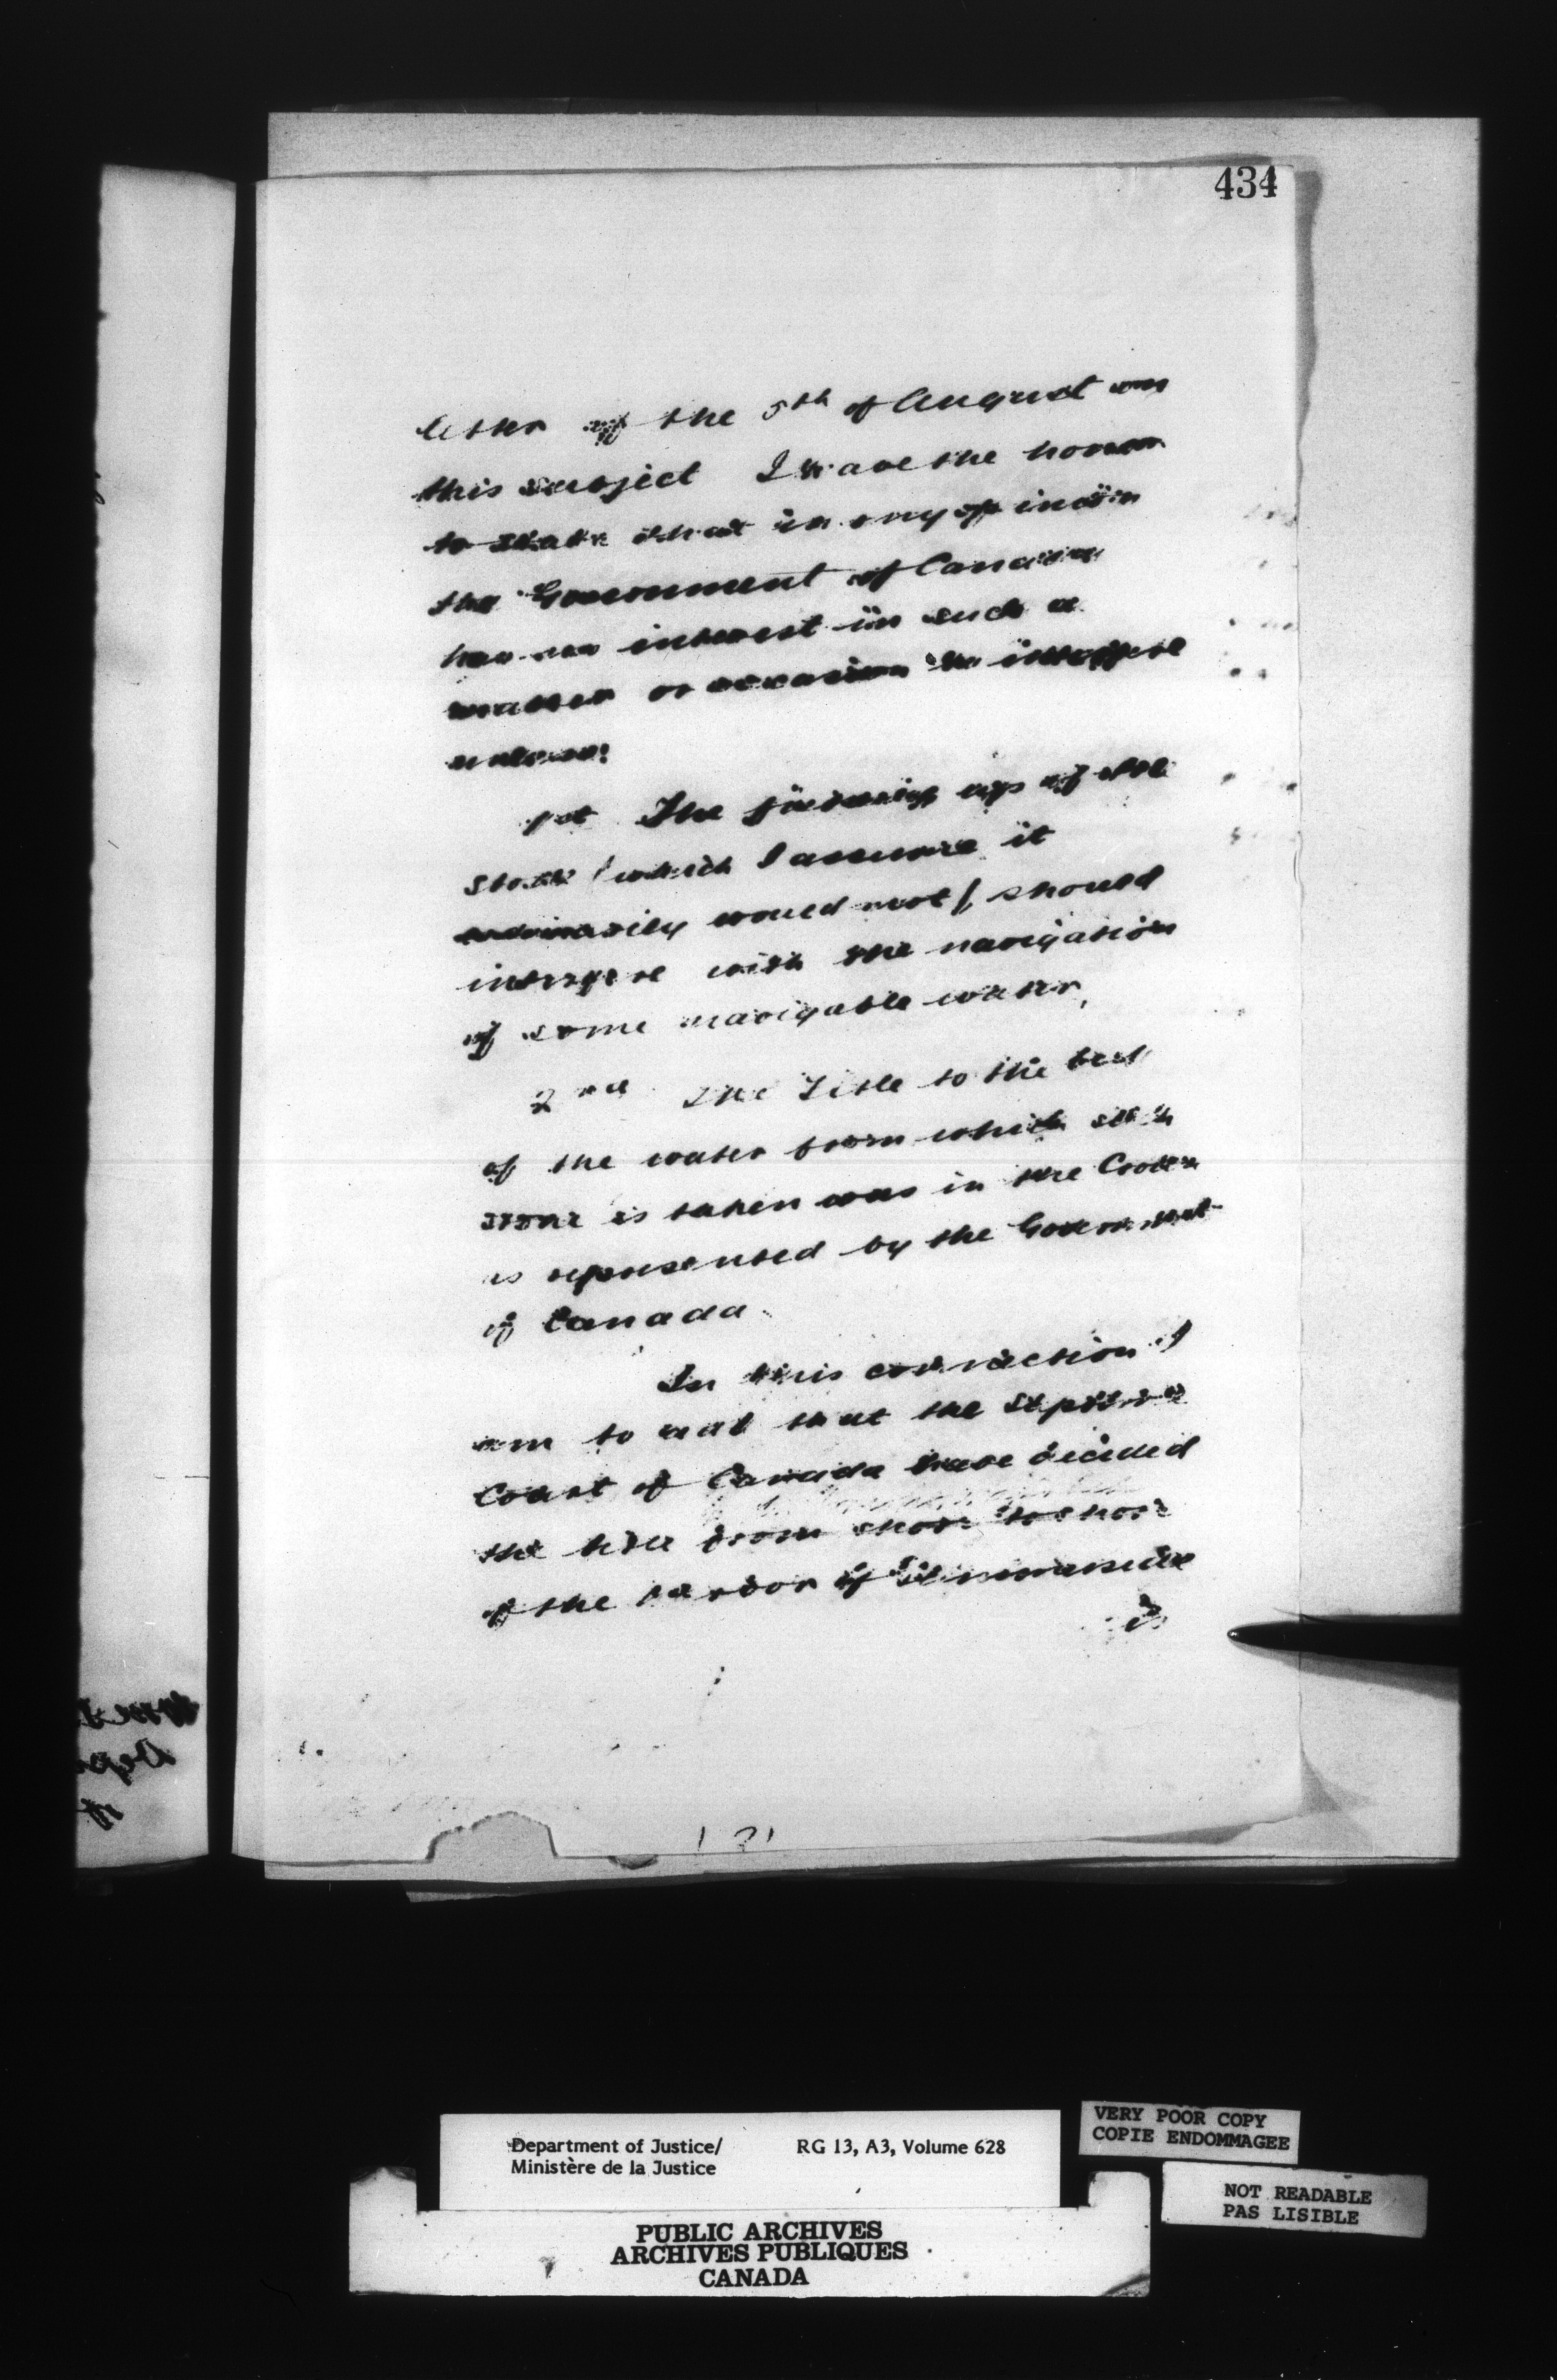 434
letter of the 5th of August on
this subject I have the honor
to state that in my opinion
the Government of Canada
has no interest in such a
matter or occasion to interfere
unless:
1st The picking up of the
stone (which I assume it
ordinarily would not) should
interfere with the navigation
of some navigable water,
2nd The Title to the bed
of the water from which such
stone is taken was in the Crown
as represented by the Government
of Canada.
In this connection I
am to add that the Supreme
Court of Canada have decided
the title from shore to shore
of the harbor of Summerside
is
Department of Justice/
Ministère de la Justice
RG 13, A3, Volume 628
VERY POOR COPY
COPIE ENDOMMAGEE
NOT READABLE
PAS LISIBLE
PUBLIC ARCHIVES
ARCHIVES PUBLIQUES
CANADA